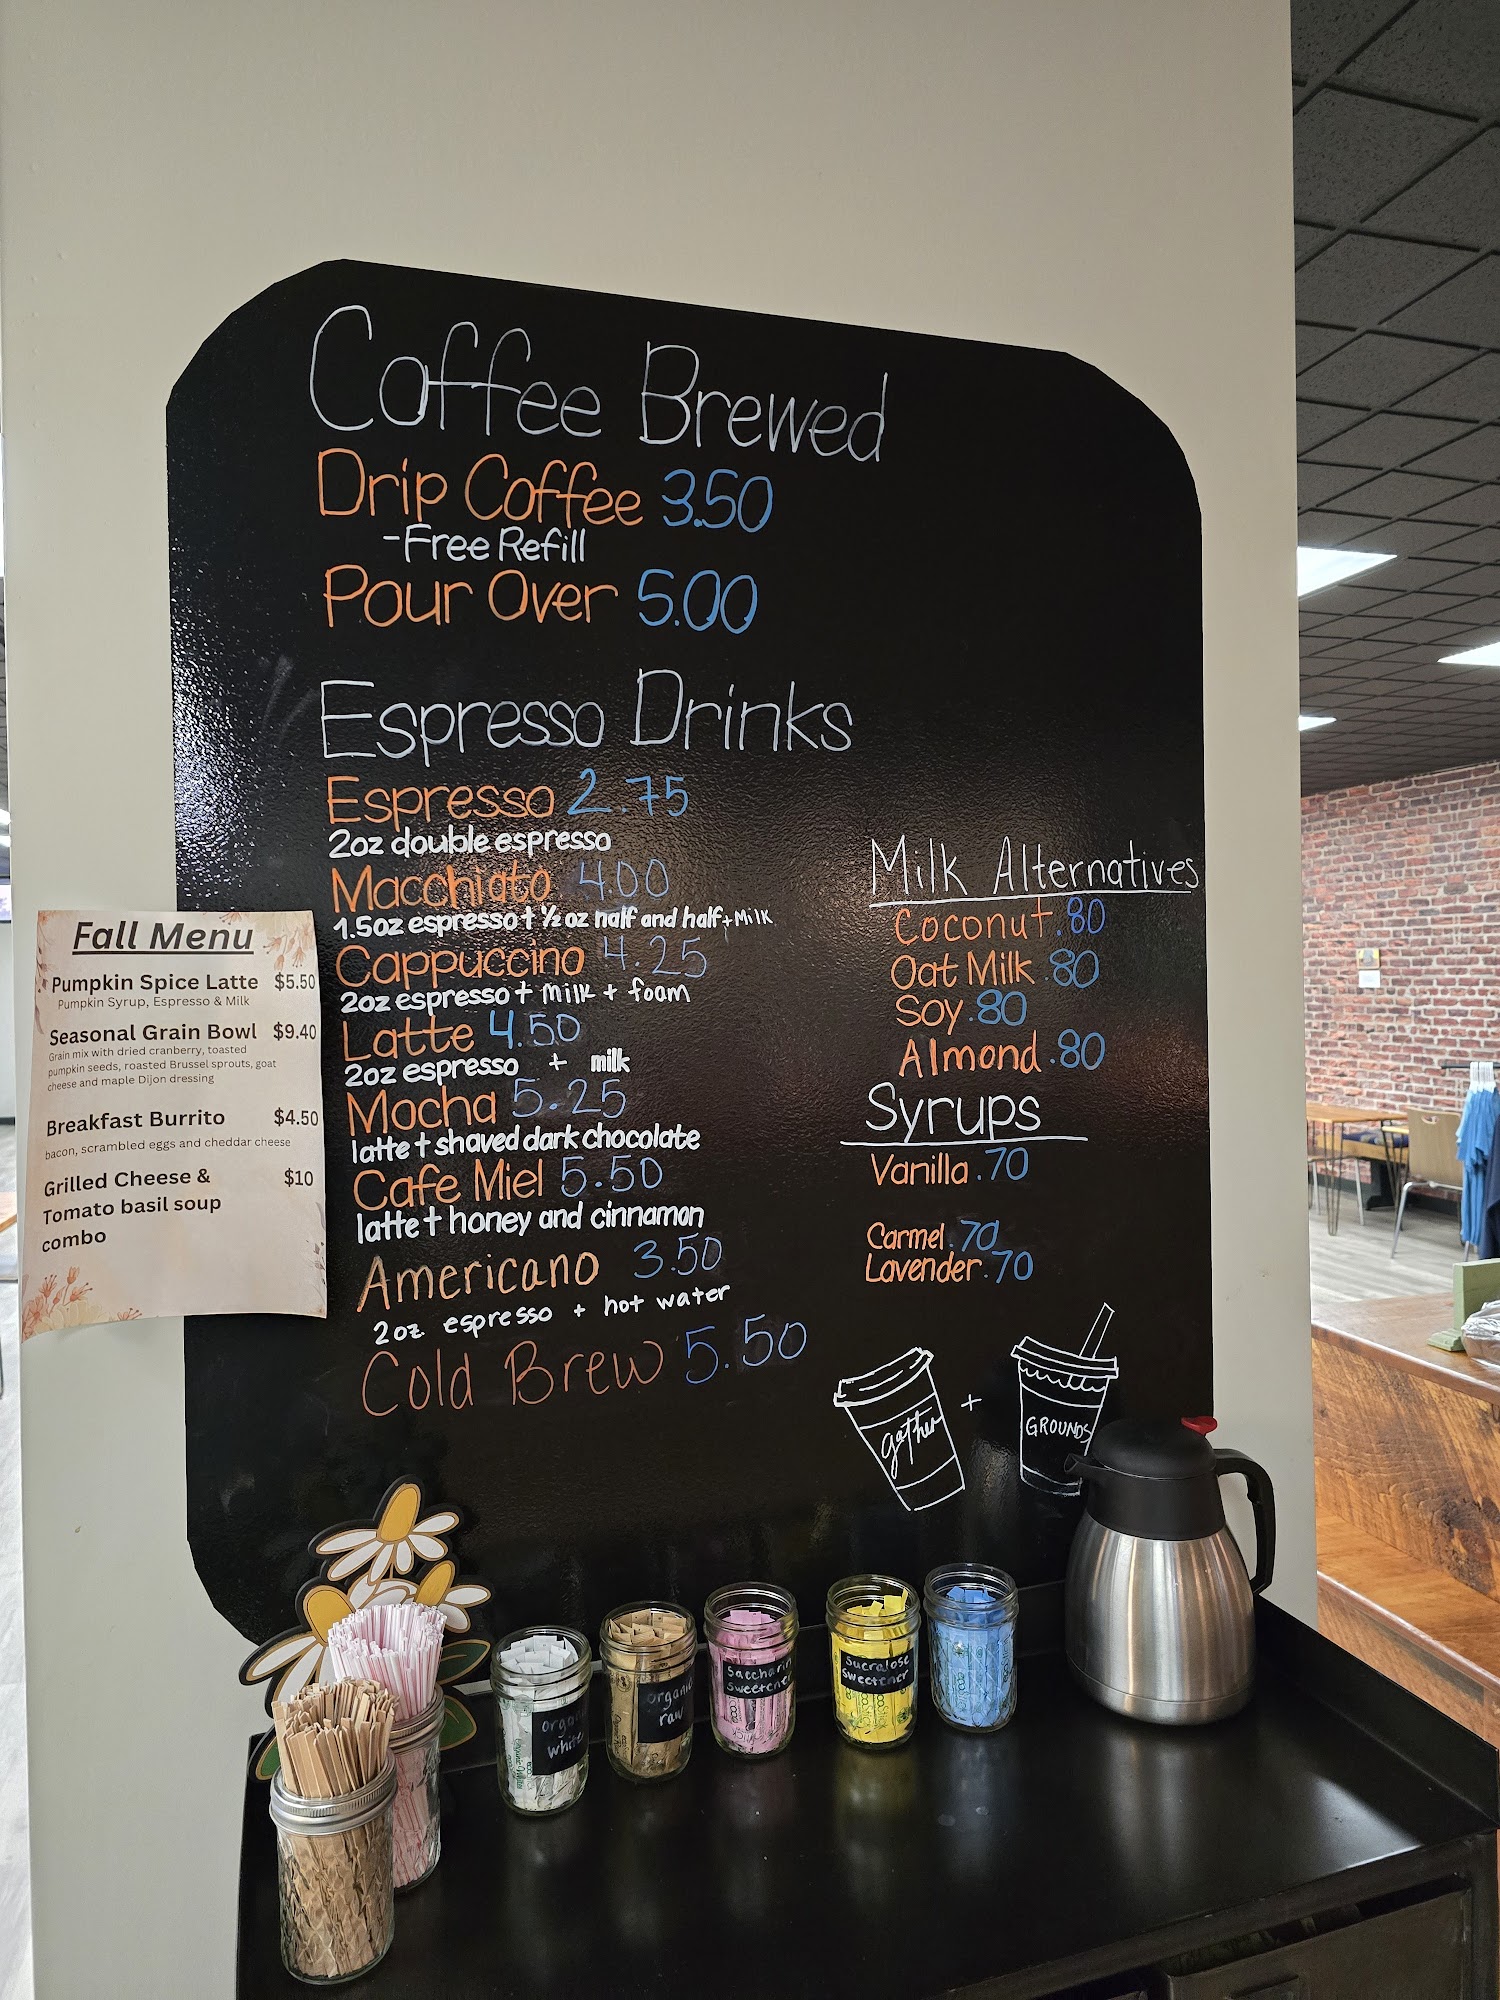 Coffee Brewed
Drip Coffee 3.50
-Free Refill
Pour Over 5.00
Espresso Drinks
Espresso 2.75
2oz double espresso
Macchiato 4.00
1.5oz espresso + ½ oz half and half + Milk
Cappuccino 4.25
2oz espresso + milk + foam
Latte 4.50
2oz espresso + milk
Mocha 5.25
latte + shaved dark chocolate
Cafe Miel 5.50
latte + honey and cinnamon
Americano 3.50
2oz espresso + hot water
Cold Brew 5.50
Milk Alternatives
Coconut .80
Oat Milk .80
Soy .80
Almond .80
Syrups
Vanilla .70
Carmel .70
Lavender .70
gather
+
GROUNDS
Fall Menu
Pumpkin Spice Latte $5.50
Pumpkin Syrup, Espresso & Milk
Seasonal Grain Bowl $9.40
Grain mix with dried cranberry, toasted
pumpkin seeds, roasted Brussel sprouts, goat
cheese and maple Dijon dressing
Breakfast Burrito $4.50
bacon, scrambled eggs and cheddar cheese
Grilled Cheese & $10
Tomato basil soup
combo
organic
white
organic
raw
saccharin
sweetener
sucralose
sweetener